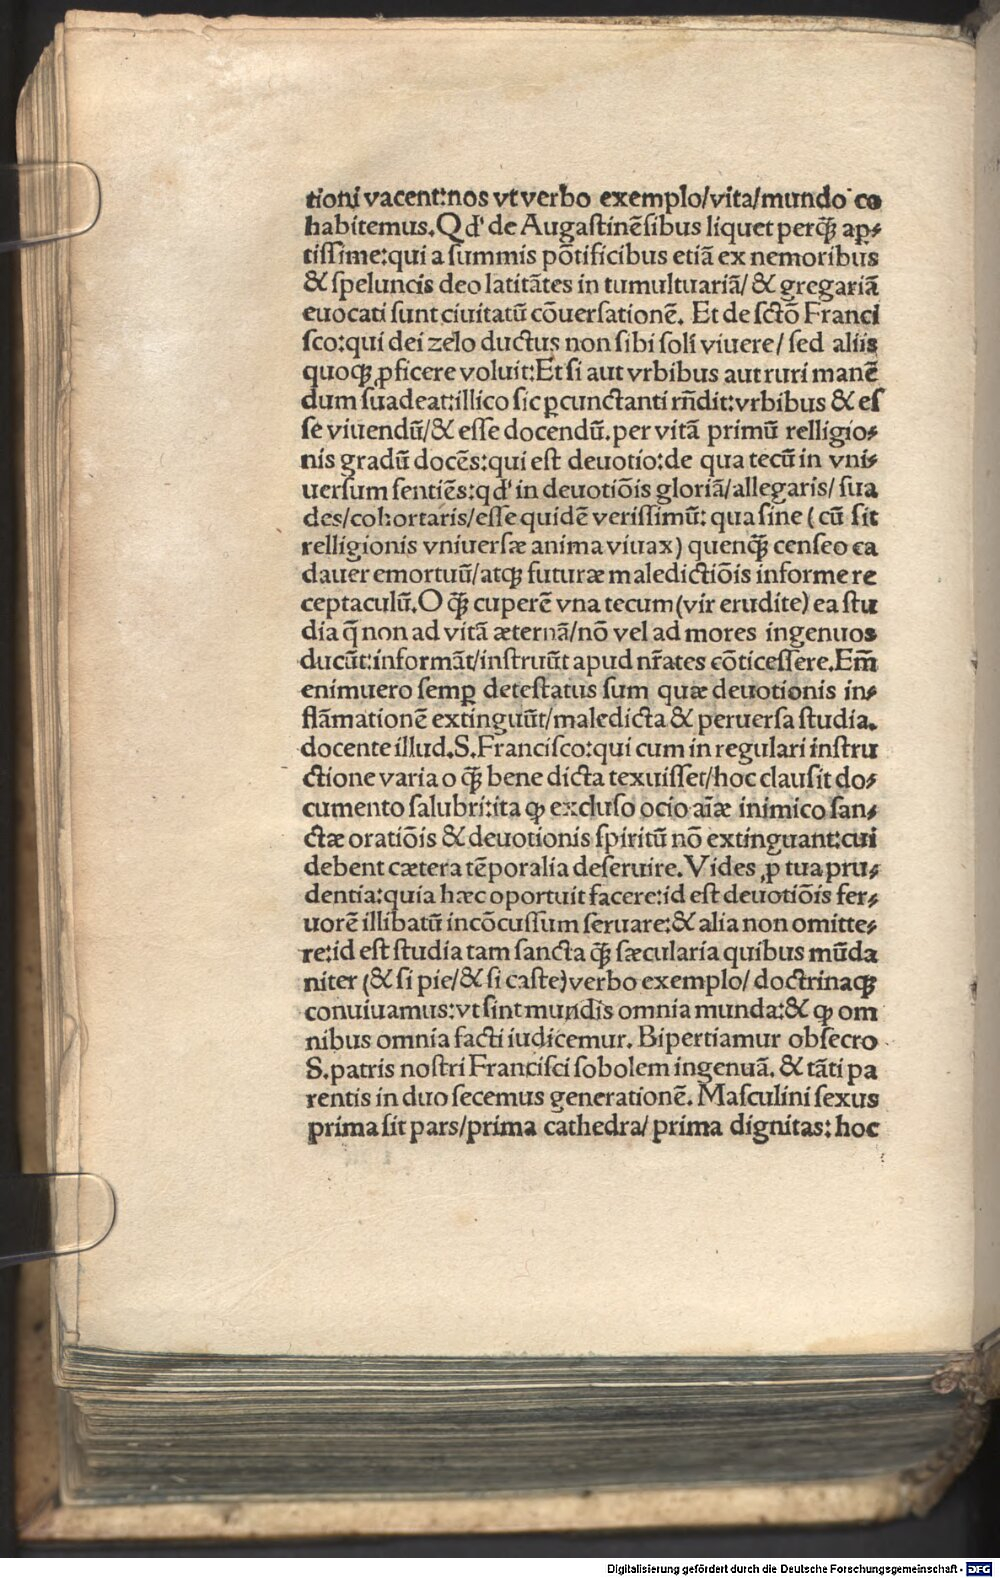 tioni vacent:nos vt verbo exemplo/vita/mundo co
habitemus. Qd' de Augastinēsibus liquet perꝗ̃ᷓ ap⸗
tissime:qui a summis pōtificibus etiā ex nemoribus
& speluncis deo latitātes in tumultuariā/ & gregariā
euocati sunt ciuitatū cōuersationē. Et de sctō Franci
sco:qui dei zelo ductus non sibi soli viuere/ sed aliis
quoqꝫ ꝓficere voluit:Et si aut vrbibus aut ruri manē
dum suadeat:illico sic ꝑcunctanti rñdit:vrbibus & eſ
ſe viuendū/& eſſe docendū.per vitā primū relligio⸗
nis gradū docēs:qui est deuotio:de qua tecū in vni⸗
uersum sentiēs:qd' in deuotiōis gloriā/allegaris/ sua
des/cohortaris/esse quidē verissimū: qua sine (cū sit
relligionis vniuersæ anima viuax) quenꝗ̃ censeo ca
dauer emortuū/atqꝫ futuræ maledictiōis informe re
ceptaculū. O ꝗ̃ cuperē vna tecum (vir erudite) ea stu
dia q̄ non ad vitā æternā/nō vel ad mores ingenuos
ducūt:informāt/instruūt apud nr̄ates cōticessere. Em̄
enimuero semꝑ detestatus sum quæ deuotionis in⸗
flāmationē extinguūt/maledicta & peruersa studia.
docente illud.S.Francisco:qui cum in regulari instru
ctione varia o ꝗ̃ bene dicta texuisset/hoc clausit do⸗
cumento salubri:ita ꝙ excluso ocio aīæ inimico san⸗
ctæ oratiōis & deuotionis spiritū nō extinguant:cui
debent cætera tēporalia deseruire. Vides ꝓ tua pru⸗
dentia:quia hæc oportuit facere:id est deuotiōis fer⸗
uorē illibatū incōcussum seruare:& alia non omitte⸗
re:id est studia tam sancta ꝗ̃ sæcularia quibus mūda
niter (& si pie/& si caste) verbo exemplo/ doctrinaqꝫ
conuiuamus:vt sint mundis omnia munda:& ꝙ om
nibus omnia facti iudicemur. Bipertiamur obsecro
S.patris nostri Francisci sobolem ingenuā. & tāti pa
rentis in duo secemus generationē. Masculini sexus
prima sit pars/prima cathedra/ prima dignitas: hoc
Digitalisierung gefördert durch die Deutsche Forschungsgemeinschaft - DFG